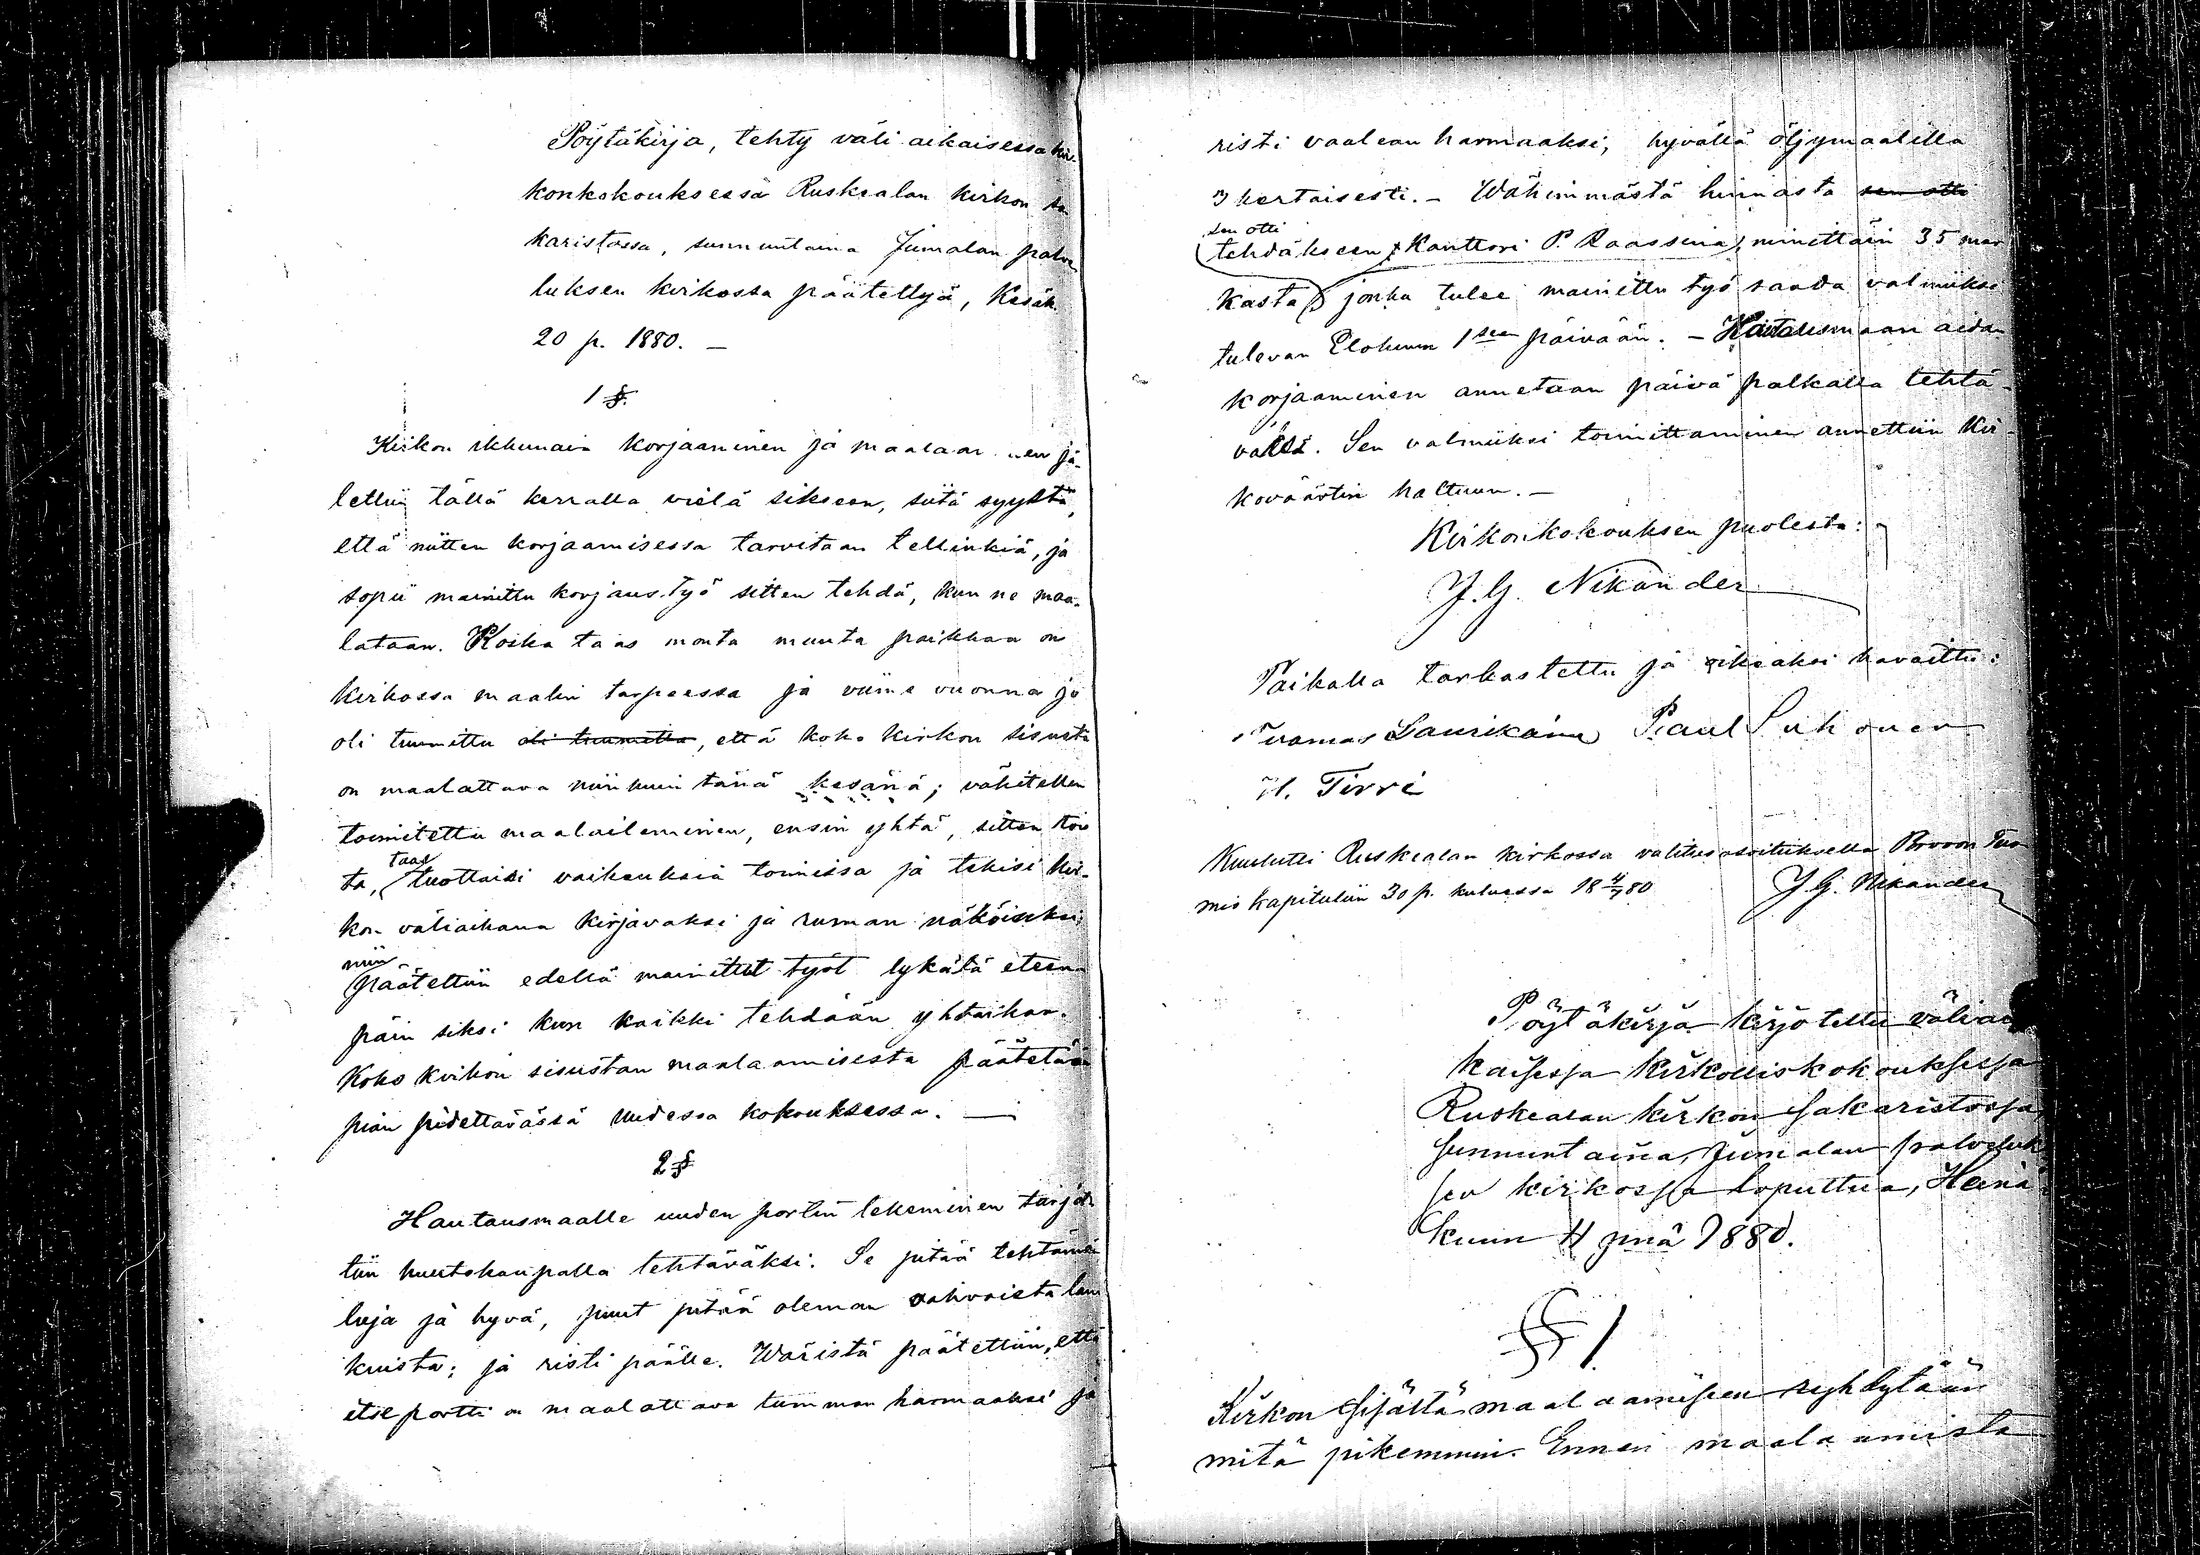 Pöytäkirja, tehty väli aikaisessa kir-
konkokouksessa Ruskealan kirkon sa-
karistossa, sunnuntaina Jumalan palve
luksen kirkossa päätettyä, Kesäk.
20 p. 1880. —
1 §.
Kirkon ikkunain korjaaminen ja maalaaminen jä-
tettiin tällä kerralla vielä siksecn, siitä syystä,
että niitten korjaamisessa tarvitaan tellinkiä, ja
sopii mainittu korjaus työ sitten tehdä, kun ne maa-
lataan. Koska taas monta muuta paikkaa on
kirkossa maalin tarpeessa ja viime vuonna jo
oli tuumittu oli tuumittu, että koko kirkon sisusta
on maalattava niinkuin tänä kesänä; vähitellen
toimitettu maalaileminen, ensin yhtä, sitten tois
ta, taas tuottaisi vaikeuksia toimissa ja tekisi kir-
kon väliaikana kirjavaksi ja ruman näköiseksi;
niin päätettiin edellä mainitut työt lykätä eteen-
päin siksi kun kaikki tehdään yhtaikaa.
Koko kirkon sisustan maalaamisesta päätetään
pian pidettävässä uudessa kokouksessa. —
2 §
Hautausmaalle uuden portin tekeminen tarjot-
tiin huutokaupalla tehtäväksi. Se pitää tehtämän
luja ja hyvä, puut pitää oleman vahvoista lan
kuista; ja risti päälle. Wäristä päätettiin, että
itse portti on maalattava tumman harmaaksi ja
risti vaalean harmaaksi, hyvällä öljymaalilla
3 kertaisesti. — Wähimmästä hinnasta sen otti
sen otti
tehdäkseen Kanttori P. Kaassinia, nimittäin 35 mar
kasta, jonka tulee mainittu työ saada valmiiksi
tulevan Elokuun 1 seen päivään. — Hautausmaan aidan
korjaaminen annetaan päivä palkalla tehtä-
väksi. Sen valmiiksi toimittaminen annettiin Kir-
koväärtin haltuun. —
Kirkonkokouksen puolesta:
J. G. Nikander
Paikalla tarkastettu ja oikeaksi havaittu:
Tuomas Laurikaine Paul Suhonen
H. Tirri
Kuulutti Ruskealan kirkossa valitus osoituksella Porvoon Tuo
mio Kapituliin 30 p. kuluessa 18 4/7 80 J. G. Nikander
Pöytäkirja kirjotettu väliai
kaisessa kirkolliskokouksessa
Ruskealan kirkon sakaristossa,
sunnuntaina, Jumalan palveluk
sen kirkossa loputtua, Heinä-
kuun 4 pnä 1880.
§ 1.
Kirkon sisältä maalaamiseen ryhdytään
mitä pikemmin. Ennen maalaamista